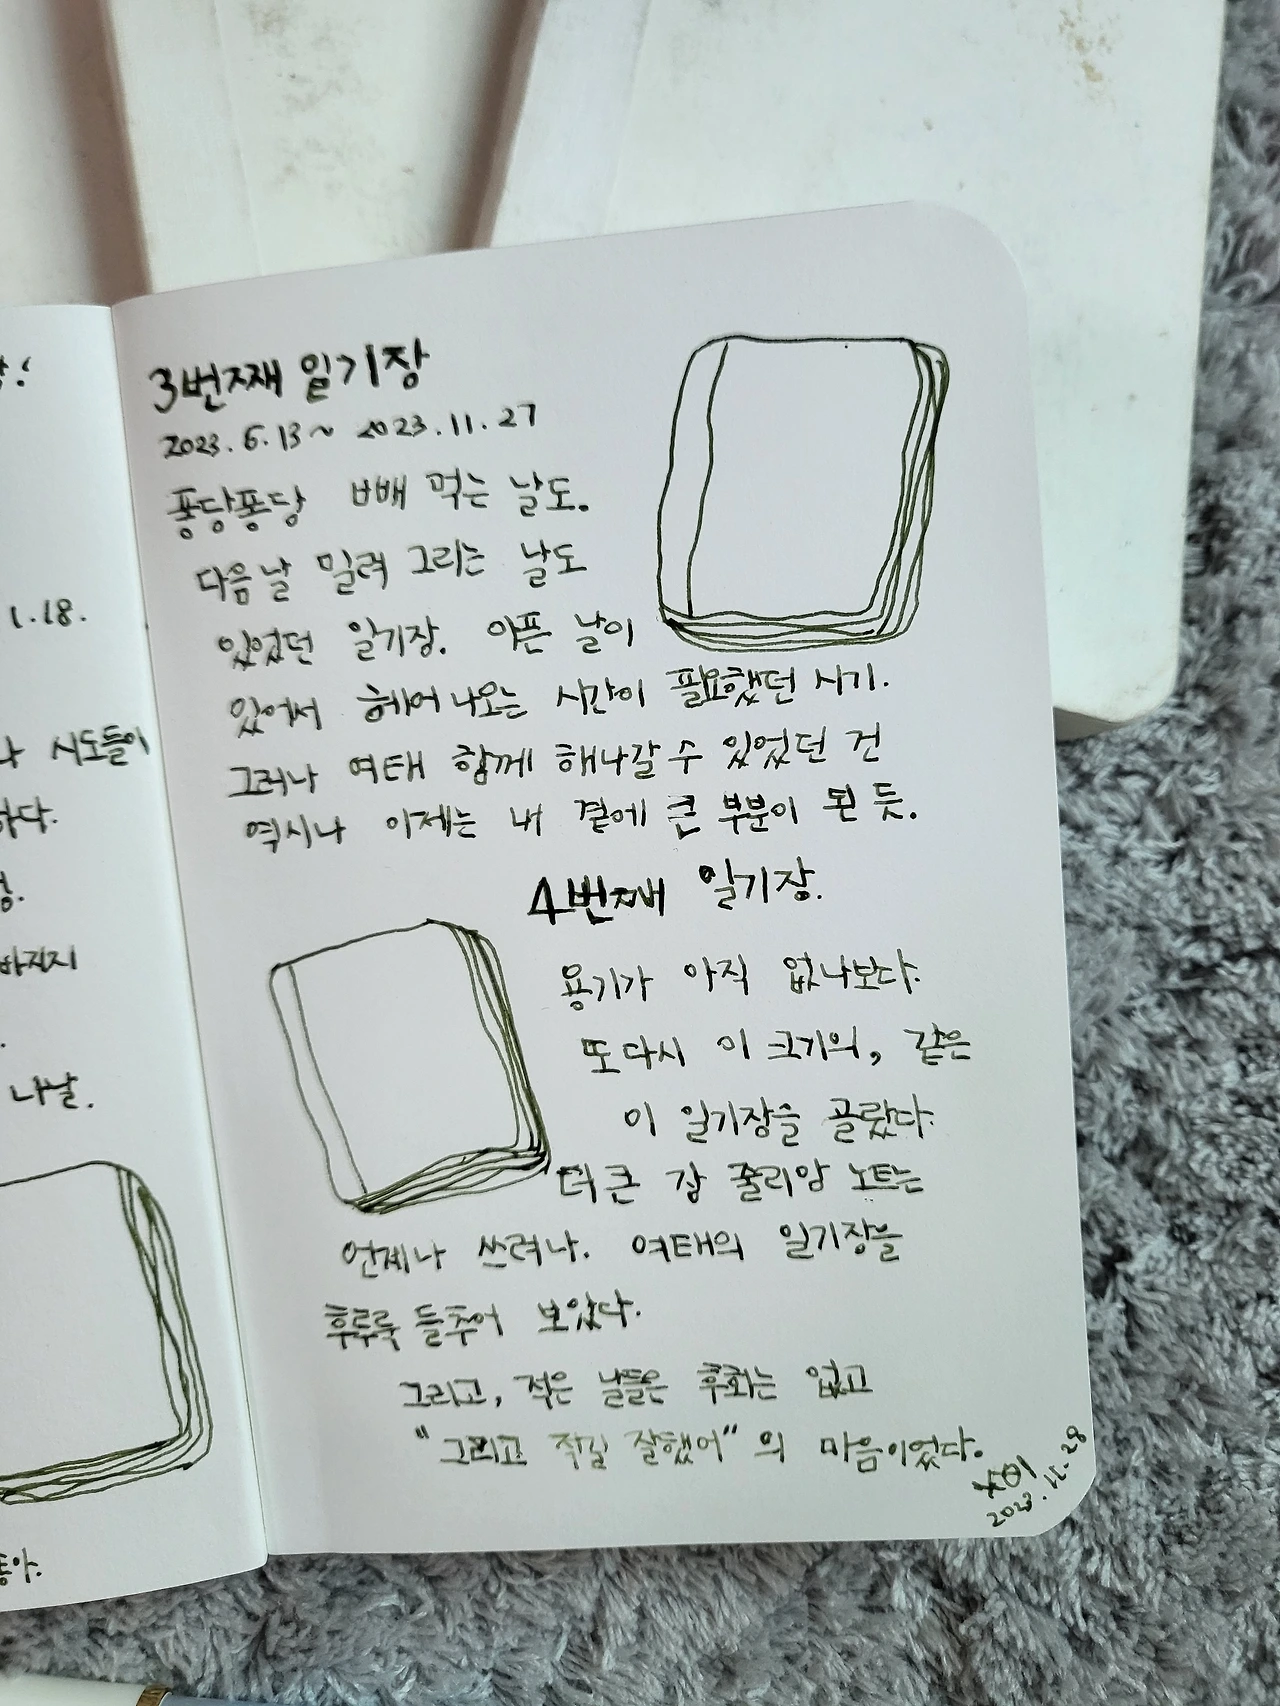 1.18.
시도들이
하다.
바지지
나날.
3번째 일기장
2023.6.13~ 2023.11.27
퐁당퐁당 빼 먹는 날도.
다음날 밀려 그리는 날도
있었던 일기장. 아픈 날이
있어서 헤어나오는 시간이 필요했던 시기.
그러나 여태 함께 해나갈 수 있었던 건
역시나 이제는 내 곁에 큰 부분이 된 듯.
4번째 일기장.
용기가 아직 없나보다.
또 다시 이 크기의, 같은
이 일기장을 골랐다.
더 큰 감 줄리앙 노트는
언제나 쓰려나. 여태의 일기장을
후루룩 들추어 보았다.
그리고, 적은 날들은 후회는 없고
"그리고 적길 잘했어" 의 마음이었다.
2023.11.28